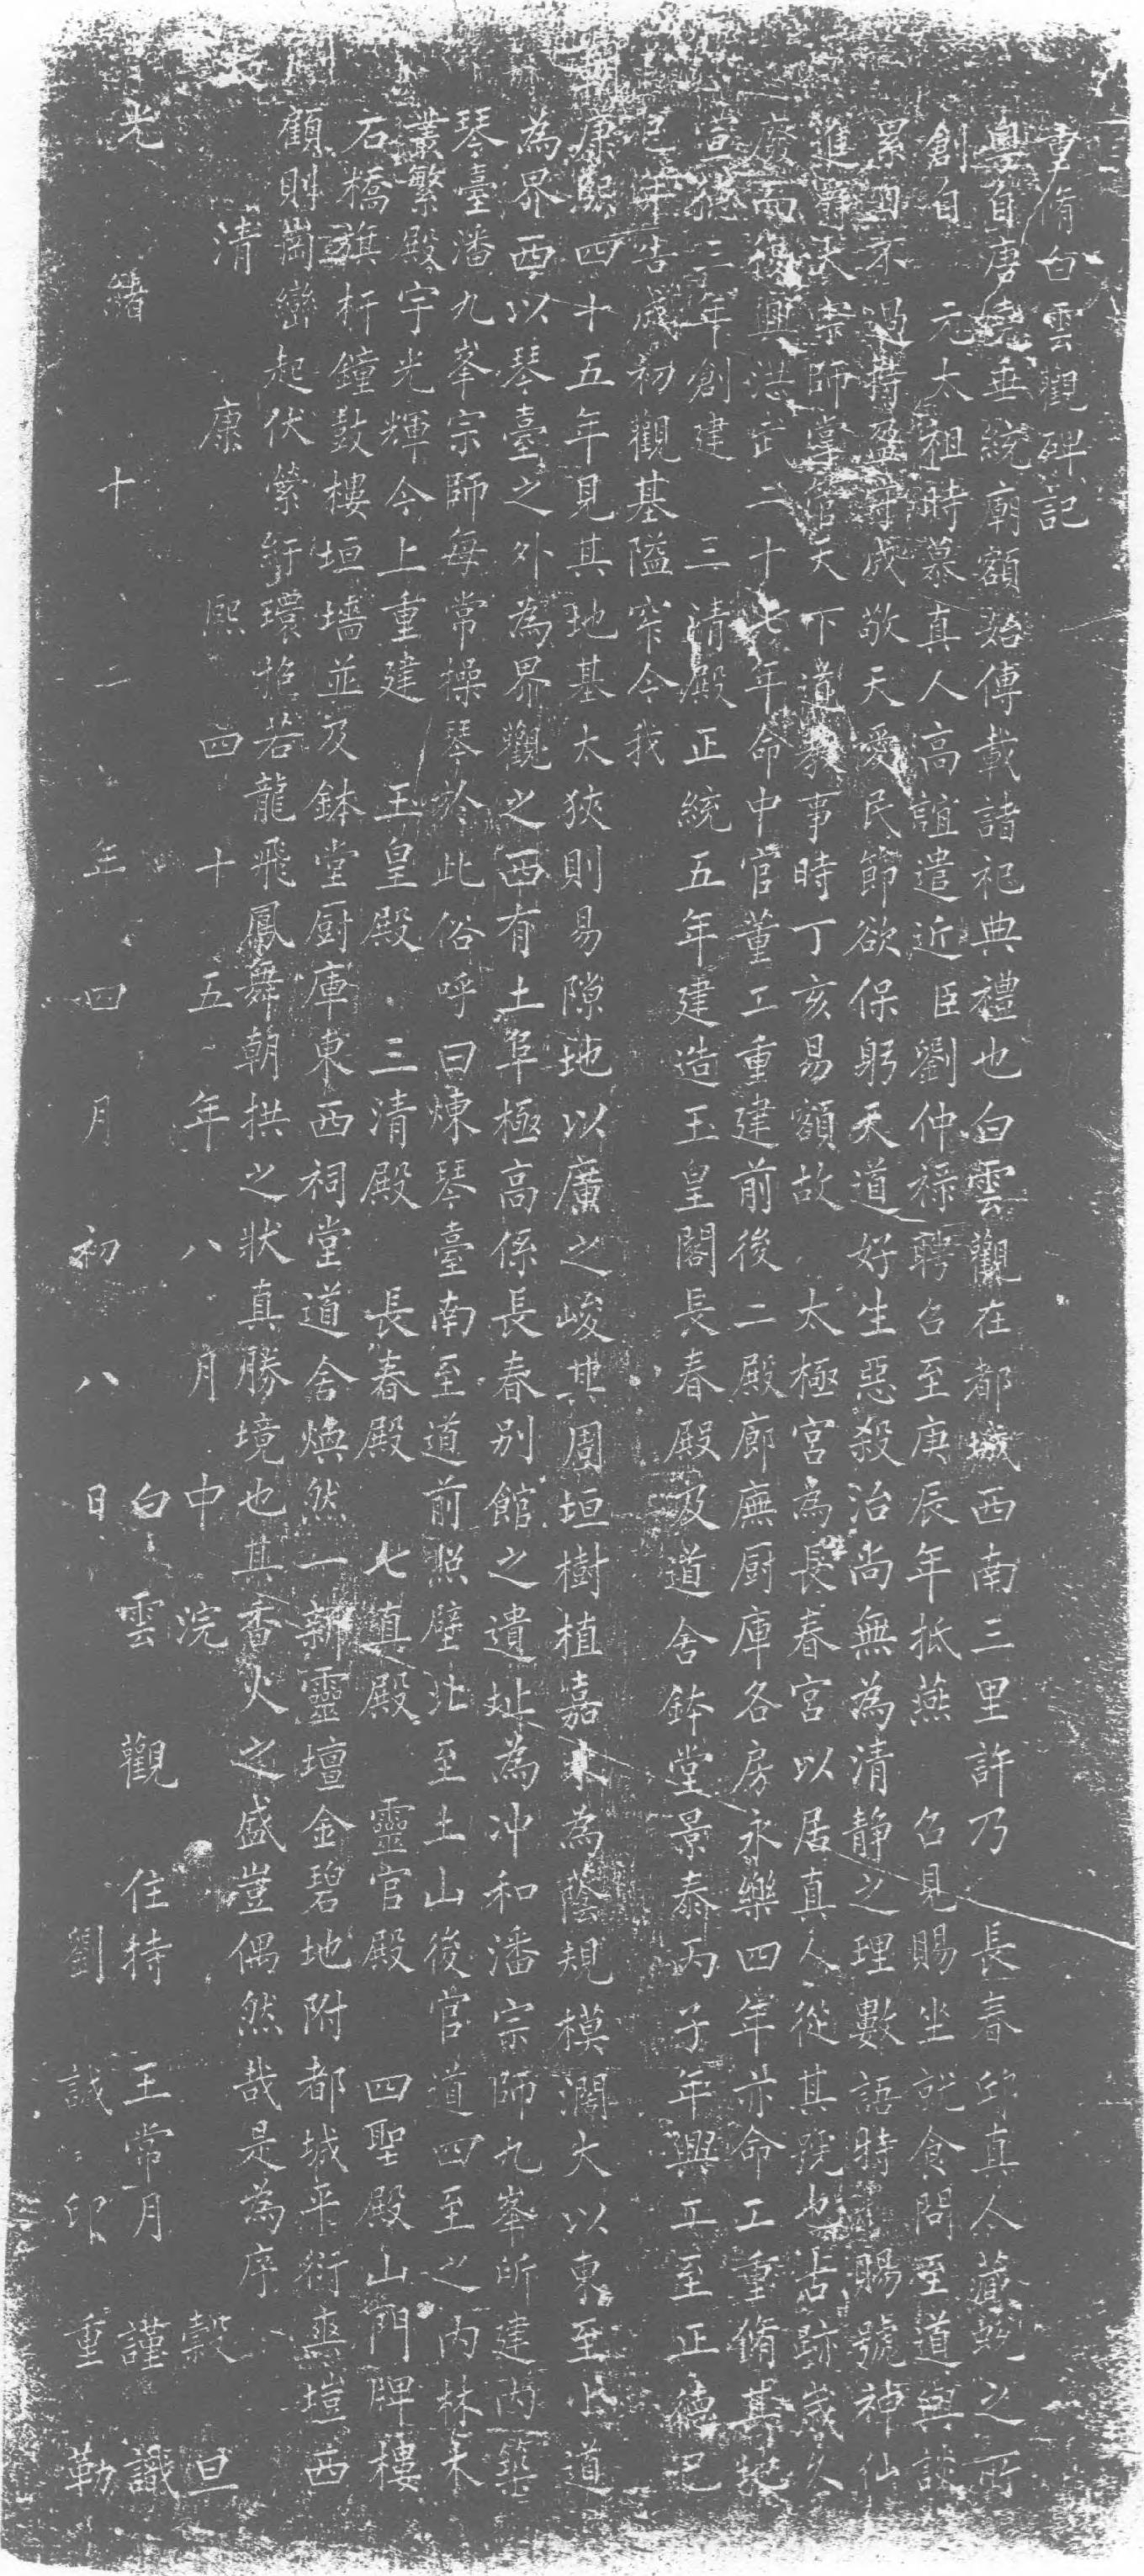 重脩白雲觀碑記
粵自唐堯垂統廟額始傳載諸祀典禮也白雲觀在都城西南三里許乃 長春邱真人藏蛻之所
創自 元太祖時慕真人高誼遣近臣劉仲祿聘召至庚辰年抵燕 召見賜坐就食問至道與談
累日不過持盈守成敬天愛民節欲保躬天道好生惡殺治尚無為清靜之理數語時賜號神仙
進爵大宗師掌管天下道教事時丁亥易額故 太極宮為長春宮以居真人從其號也居跡歲久
廢而復興洪武二十七年命中官董工重建前後二殿廊廡厨庫各房永樂四年亦命工重脩其地
宣德三年創建 三清殿正統五年建造玉皇閣長春殿及道舍鉢堂景泰丙子年興工至正德己
巳年告成初觀基隘窄今我
康熙四十五年見其地基太狹則易隙地以廣之峻其周垣樹植嘉木為蔭規模濶大以東至止道
為界西以琴臺之外為界觀之西有土阜極高係長春別館之遺址為冲和潘宗師九峯所建內築
琴臺潘九峯宗師每常操琴於此俗呼曰煉琴臺南至道前照壁北至土山後官道四至之內林木
叢繁殿宇光輝今上重建 玉皇殿 三清殿 長春殿 七真殿 靈官殿 四聖殿山門牌樓
石橋旗杆鐘鼓樓垣墻並及鉢堂厨庫東西祠堂道舍煥然一新靈壇金碧地附都城平衍塽塏西
顧則崗巒起伏縈紆環抱若龍飛鳳舞朝拱之狀真勝境也其香火之盛豈偶然哉是為序
清 康 熙 四 十 五 年 八 月 中 浣 穀 旦
白 雲 觀 住持 王常月 謹 識
光 緒 十 二 年 四 月 初 八 日 劉 誠 印 重 勒